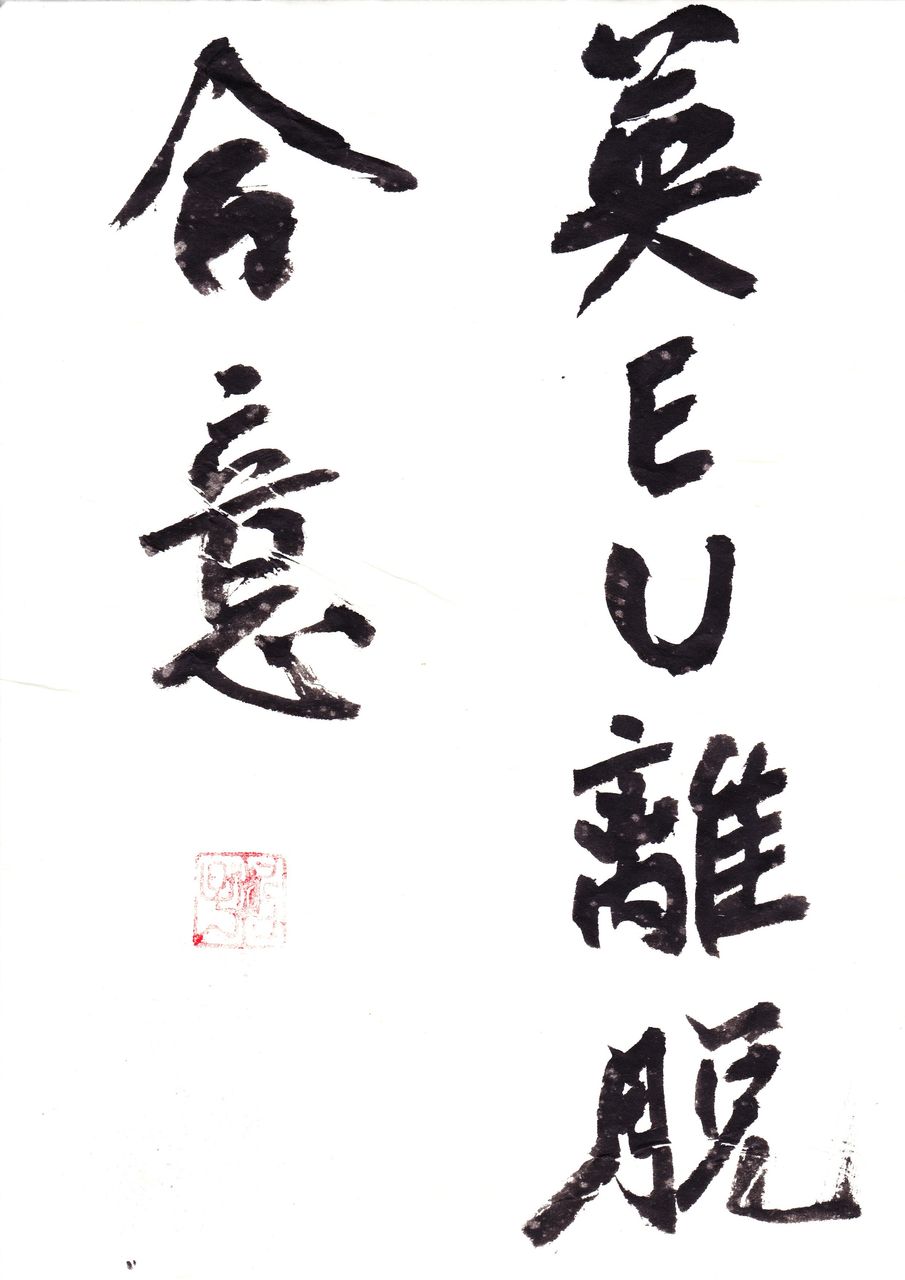 英EU離脱
合意